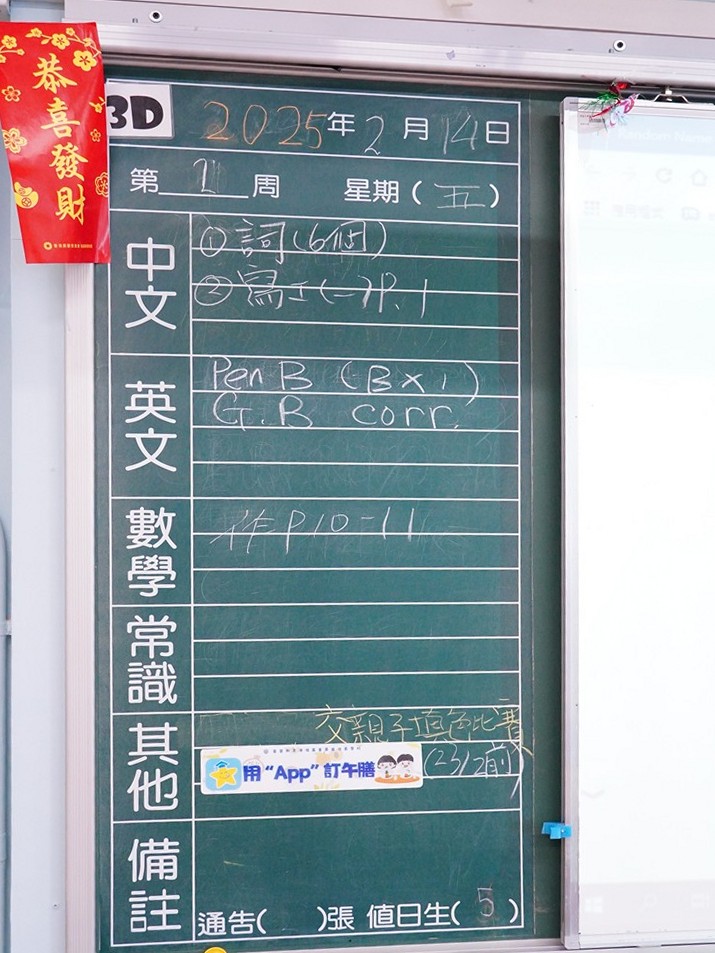 恭喜發財
3D
2025年2月14日
第1周 星期(五)
中文
①詞(6個)
②寫工(一)P.1
英文
Pen B (B×1)
G.B corr.
數學
作P10-11
常識
其他
交親子填色比賽
(23/2前)
用“App”訂午膳
備註
通告( )張 值日生(5)